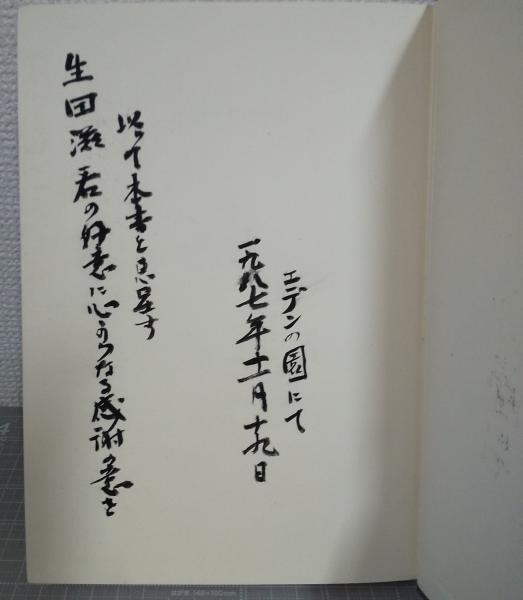 生田滋君の好意に心からなる感謝の意を
以て本書を恵呈す
一九八七年十一月十九日
エデンの園にて
148×100mm